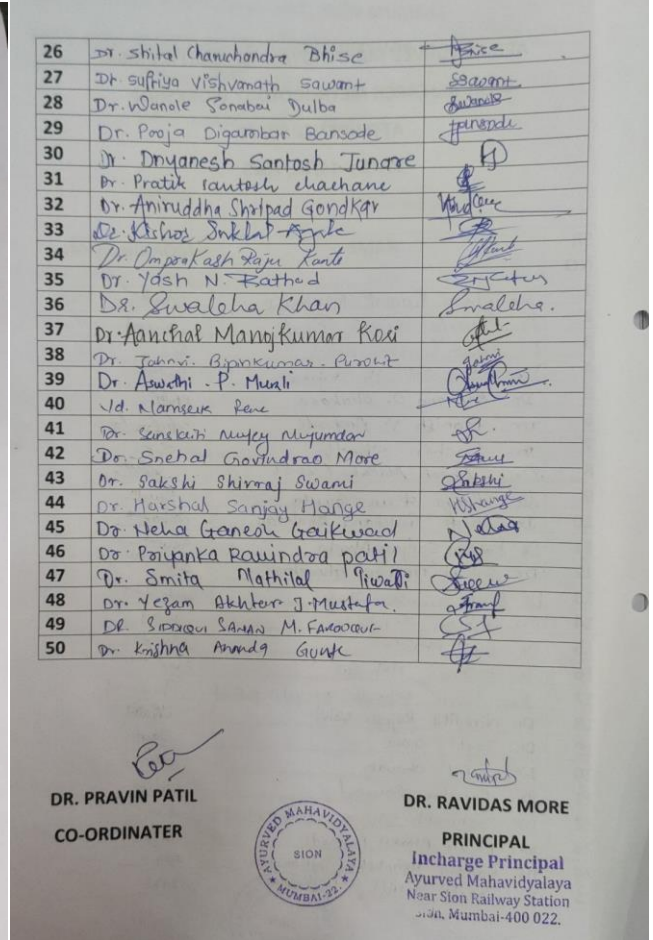 26 Dr. Shital Charuchandra Bhise Bhise
27 Dr. Supriya Vishvanath Sawant SSawant
28 Dr. Wanole Sonabai Dulba Swanole
29 Dr. Pooja Digambar Bansode Bansode
30 Dr. Dnyanesh Santosh Junare
31 Dr. Pratik Santosh Chachane
32 Dr. Aniruddha Shripad Gondkar
33 Dr. Kishor
34 Dr. Omprakash Raju Kante
35 Dr. Yash N. Rathod
36 Dr. Swaleha Khan Swaleha.
37 Dr. Aanchal Manojkumar Kori
38 Dr. Jahnvi. Bipinkumar. Purohit
39 Dr. Aswathi . P. Murali
40 Vd. Namseuk
41 Dr. Mujumdar
42 Dr. Snehal Govindrao More
43 Dr. Sakshi Shivraj Swami Sakshi
44 Dr. Harshal Sanjay Hange HShange
45 Dr. Neha Ganesh Gaikwad Neha
46 Dr. Priyanka Ravindra patil
47 Dr. Smita Mathilal Tiwari
48 Dr. Yezam Akhter J. Mustafa.
49 DR. SIDDIQUI SAMAN M. FAROOQUI
50 Dr. Krishna Ananda
DR. PRAVIN PATIL
CO-ORDINATER
AYURVED MAHAVIDYALAYA
SION
MUMBAI-22.
DR. RAVIDAS MORE
PRINCIPAL
Incharge Principal
Ayurved Mahavidyalaya
Near Sion Railway Station
Sion, Mumbai-400 022.